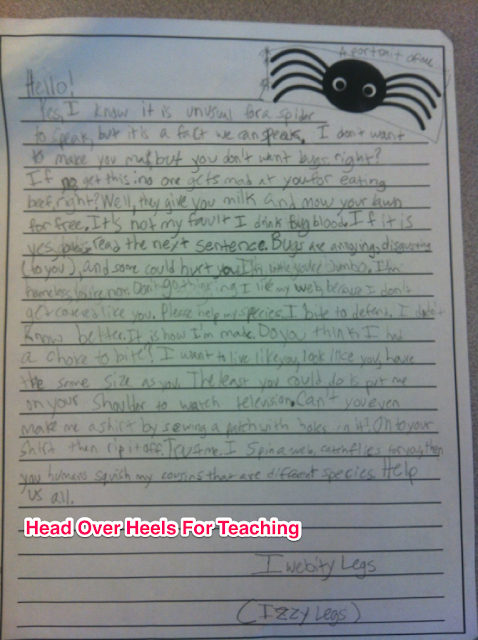 A portrait of me
Hello!
Yes, I know it is unusual for a spider
to speak, but it's a fact we can speak. I don't want
to make you mad, but you don't want bugs, right?
If get this: no one gets mad at you for eating
beef, right? Well, they give you milk and mow your lawn
for free. It's not my fault I drink bug blood. If it is
yes, read the next sentence. Bugs are annoying, disgusting
(to you), and some could hurt you. I'm while you're Jumbo. I'm
homeless you're not. Don't go thinking I like my web, because I don't
get like you. Please help my species. I bite to defend. I
know better. It is how I'm made. Do you think I had
a choice to bite? I want to live like you, look like you, have
the same size as you. The least you could do is put me
on your shoulter to watch television. Can't you even
make me a shirt by sewing a patch with holes in it! Onto your
shirt then rip it off. Trust me. I spin a web, catch flies for you, then
you humans squish my cousins that are different species. Help
us all.
Head Over Heels For Teaching
I webity Legs
(Izzy Legs)